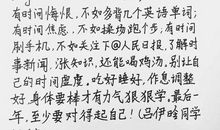 有时间悔恨，不如多背几个英语单词；
有时间焦虑，不如操场跑个步；有时间
刷手机，不如关注下@人民日报，了解时
事新闻，涨知识，还能喝鸡汤，别让自
己的时间虚度。吃好睡好，作息调整
好，身体要棒才有力气狠狠学，最后一
年，至少要对得起自己！（吕伊晗同学